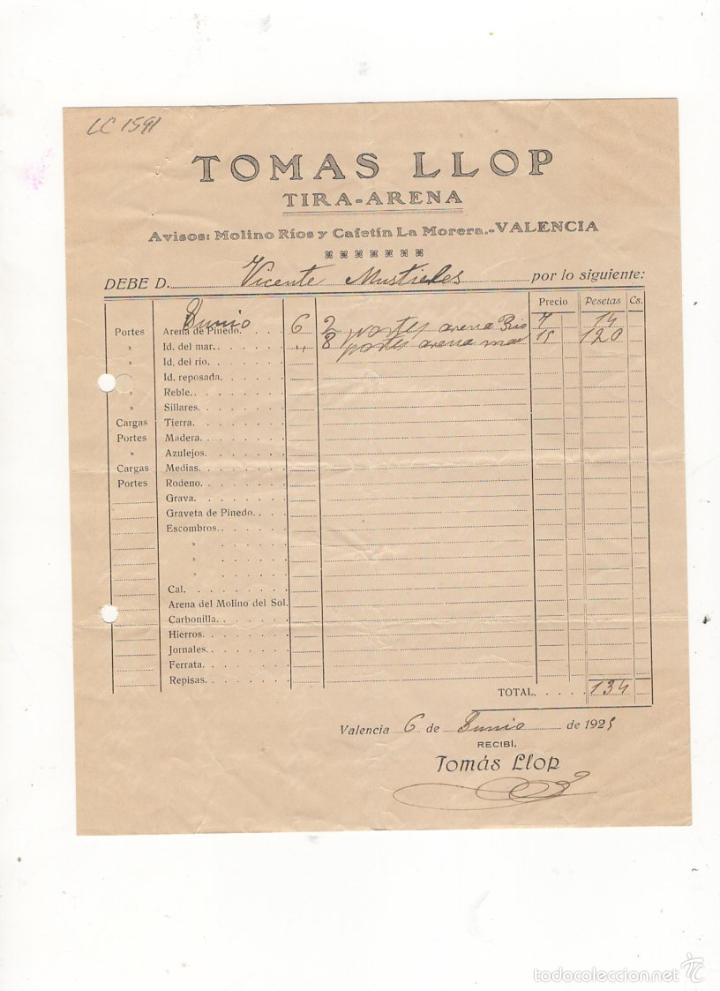 LC 1591
TOMAS LLOP
TIRA-ARENA
Avisos: Molino Ríos y Cafetín La Morera.-VALENCIA
DEBE D. Vicente Mustieles por lo siguiente:
Precio Pesetas Cs.
Junio 6 2 portes arena Rio 7 14
Portes Arena de Pinedo.
" Id. del mar. " 8 portes arena mar 15 120
" Id. del río.
" Id. reposada.
" Reble.
" Sillares.
Cargas Tierra.
Portes Madera.
" Azulejos.
Cargas Medias.
Portes Rodeno.
Grava.
Graveta de Pinedo.
Escombros.
"
"
"
Cal.
Arena del Molino del Sol.
Carbonilla.
Hierros.
Jornales.
Ferrata.
Repisas.
TOTAL. 134
Valencia 6 de Junio de 1925
RECIBÍ,
Tomás Llop
todocoleccion.net